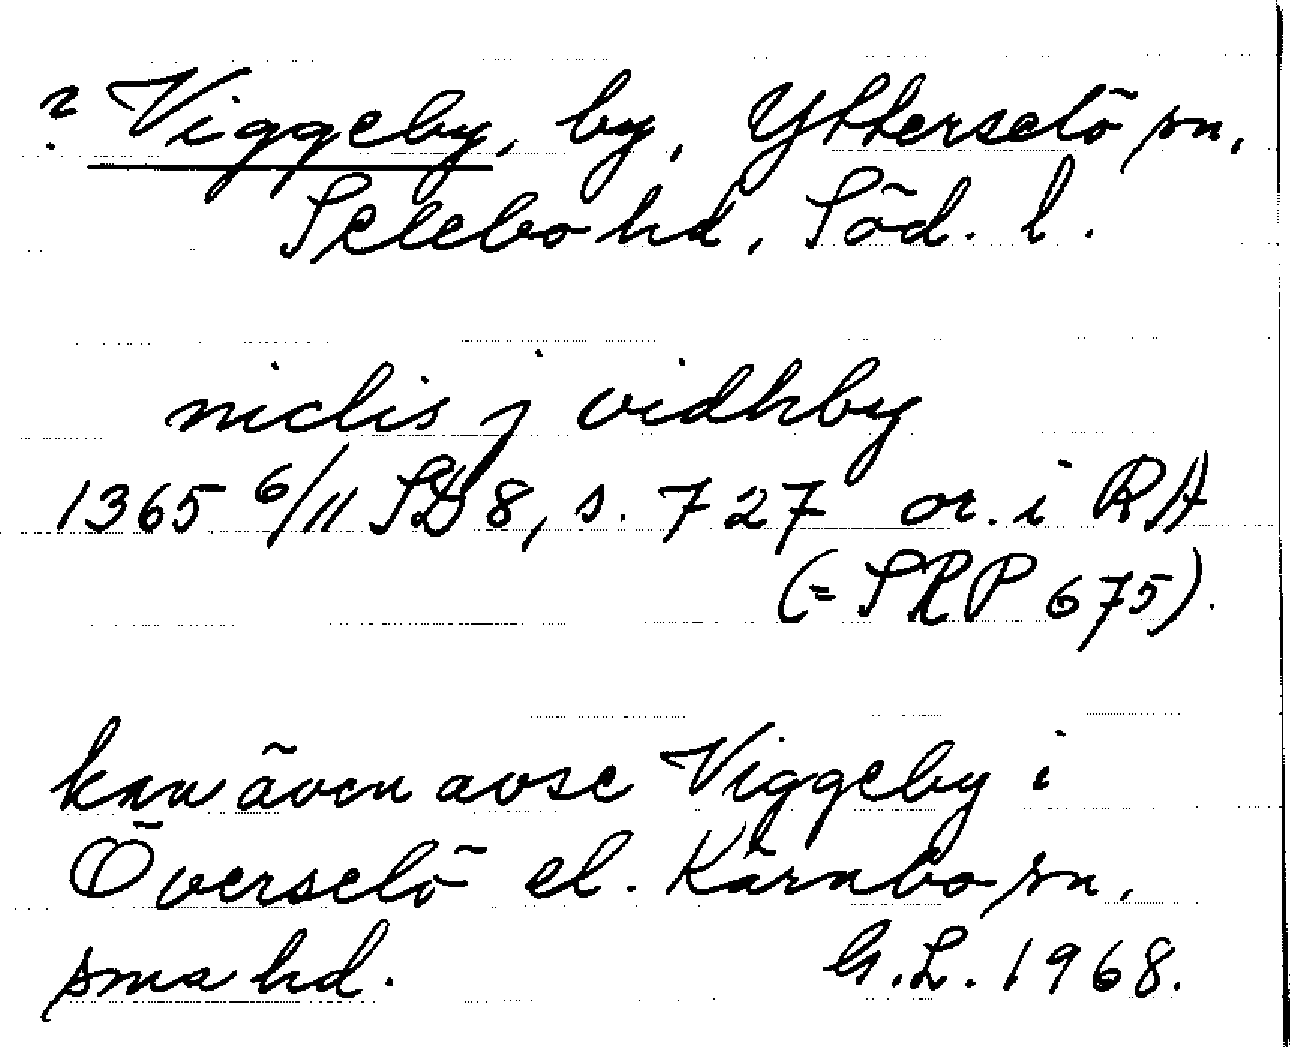 ? Viggeby, by, Ytterselö sn,
Selebo hd, Söd. l.
niclis j vidhby
1365 6/11 SD 8, s. 727 or. i RA
(= SRP 675).
kan även avse Viggeby i
Överselö el. Kärnbo sn,
sma hd. G.L. 1968.